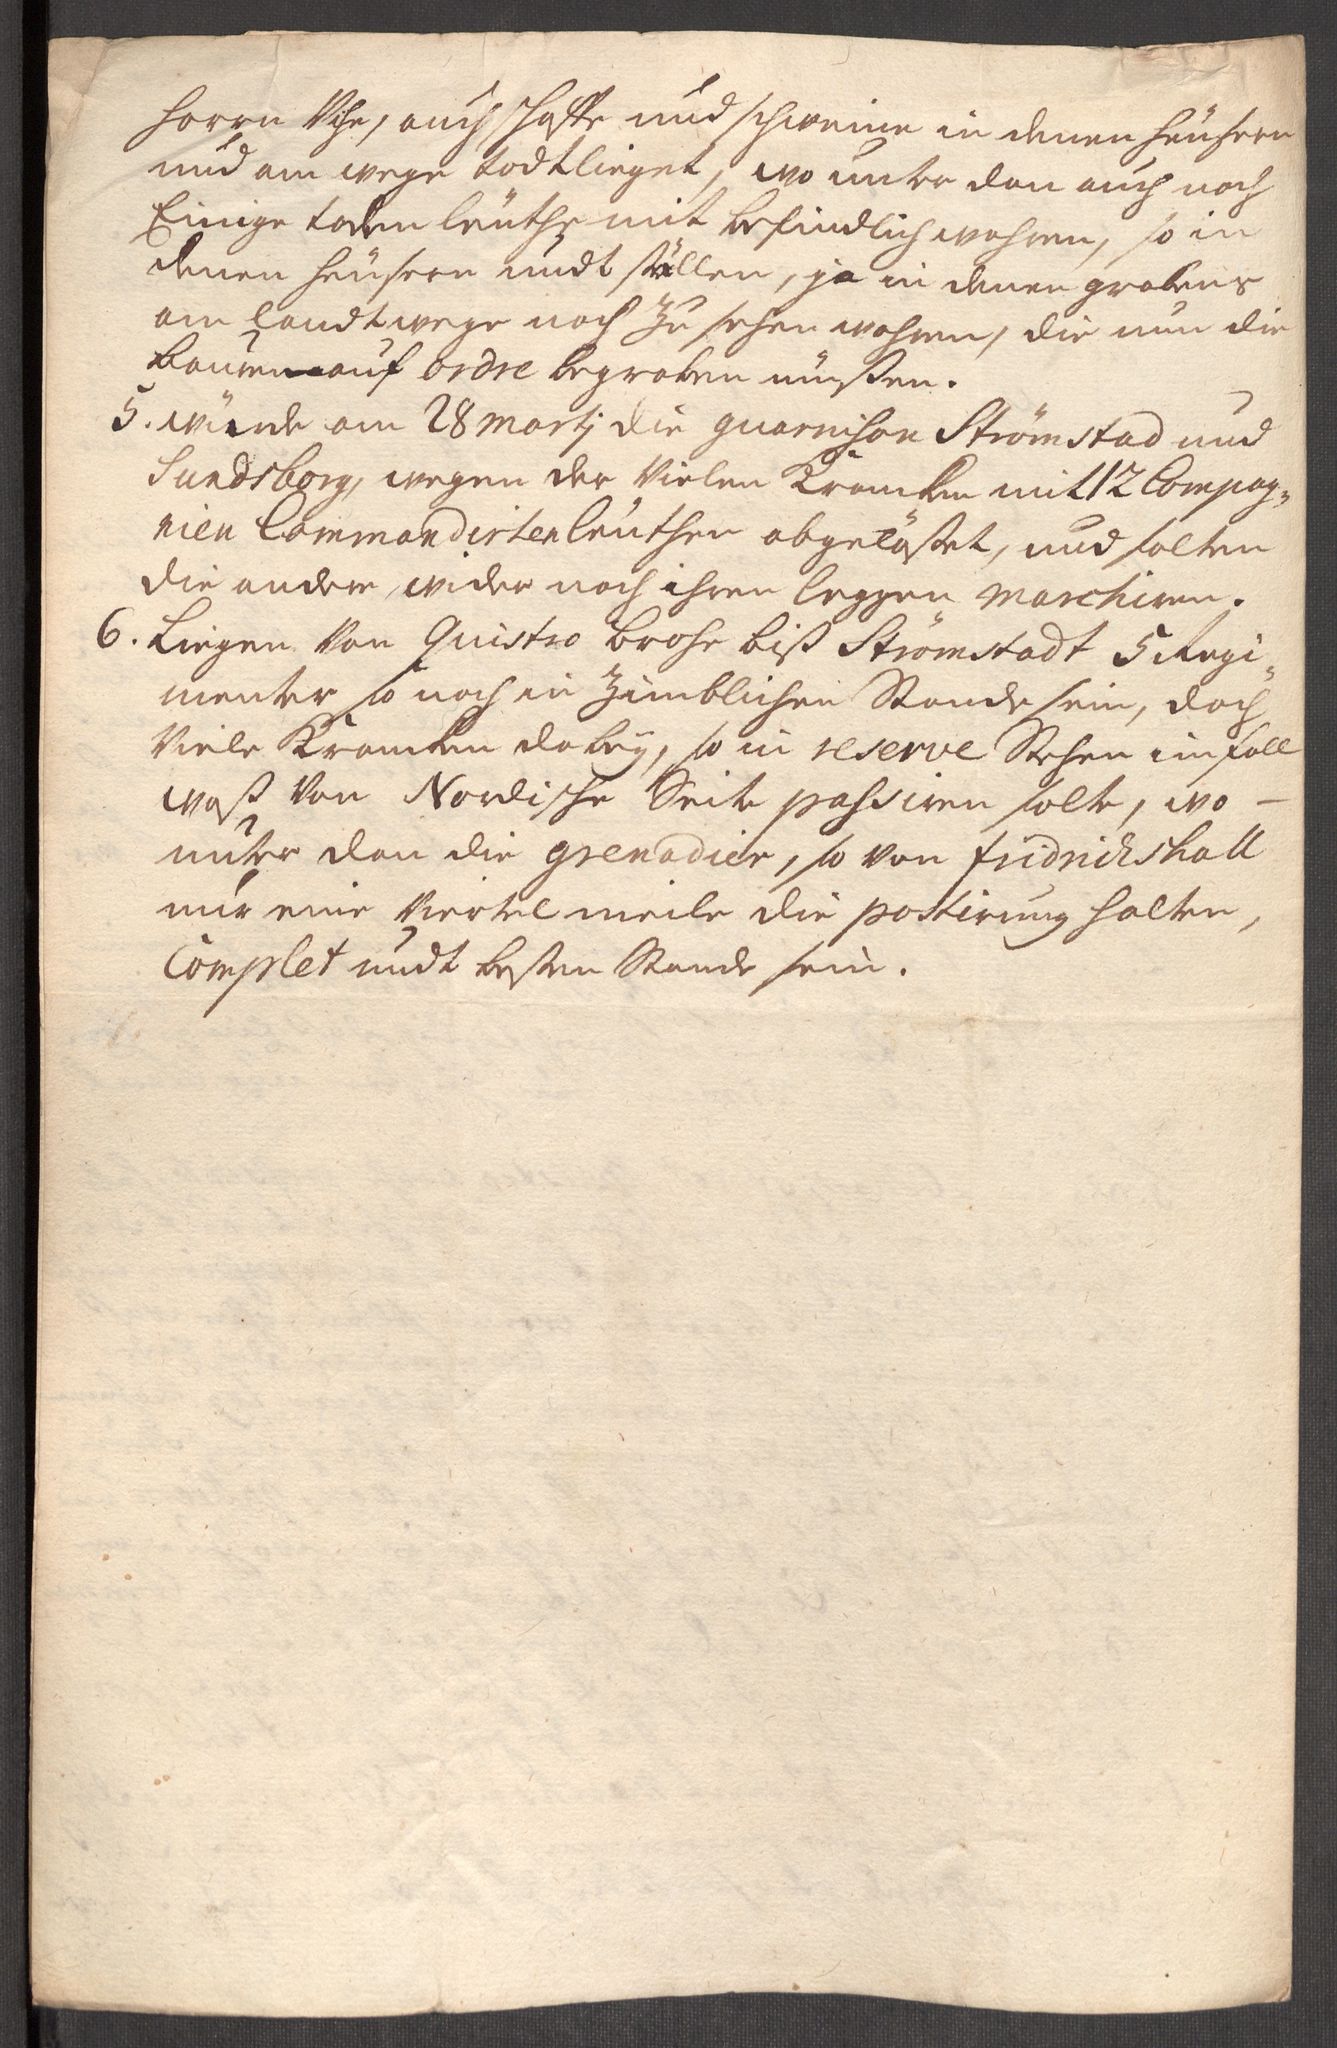 horn Vihe, auch schaffe und schweine in denen heüsern
und am wege todt lieget, wo unter dan auch noch
Einige toden leüthe mit befindlich wahren, so in
denen heüsern undt ställen, ja in denen grabens
am landt wege noch zu sehen wahren, die nun die
bauren auf ordre begraben müssen.
5. würde am 28 Martj die guarnison Strömstad und
Sundsborg, wegen der Vielen Krancken mit 12 Compag-
nien Commandirten leüthen abgelösset, und solten
die andere wider nach ihren leggen marchiren.
6. Liegen Von Quistro brohe biß Strömstadt 5 Regi-
menter so noch in zimblichen Stande sein, doch
Viele Krancken dabey, so in reserve Stehen im fall
waß Von Nordische Seite passiren solte, wo-
unter dan die grenadier, so von fridrichshall
nur eine Viertel meile die postirung halten,
Complet undt besten Stande sein.